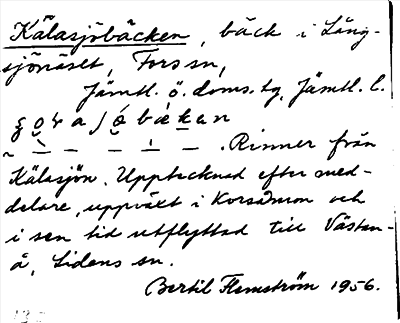 Kälasjöbäcken, bäck i Lång-
sjönäset, Fors sn,
Jämtl. ö. doms. tg, Jämtl. l.
. Rinner från
Kälasjön. Upptecknad efter med-
delare, uppväxt i Korsåmon och
i sen tid utflyttad till Västan-
å, Lidens sn.
Bertil Flemström 1956.